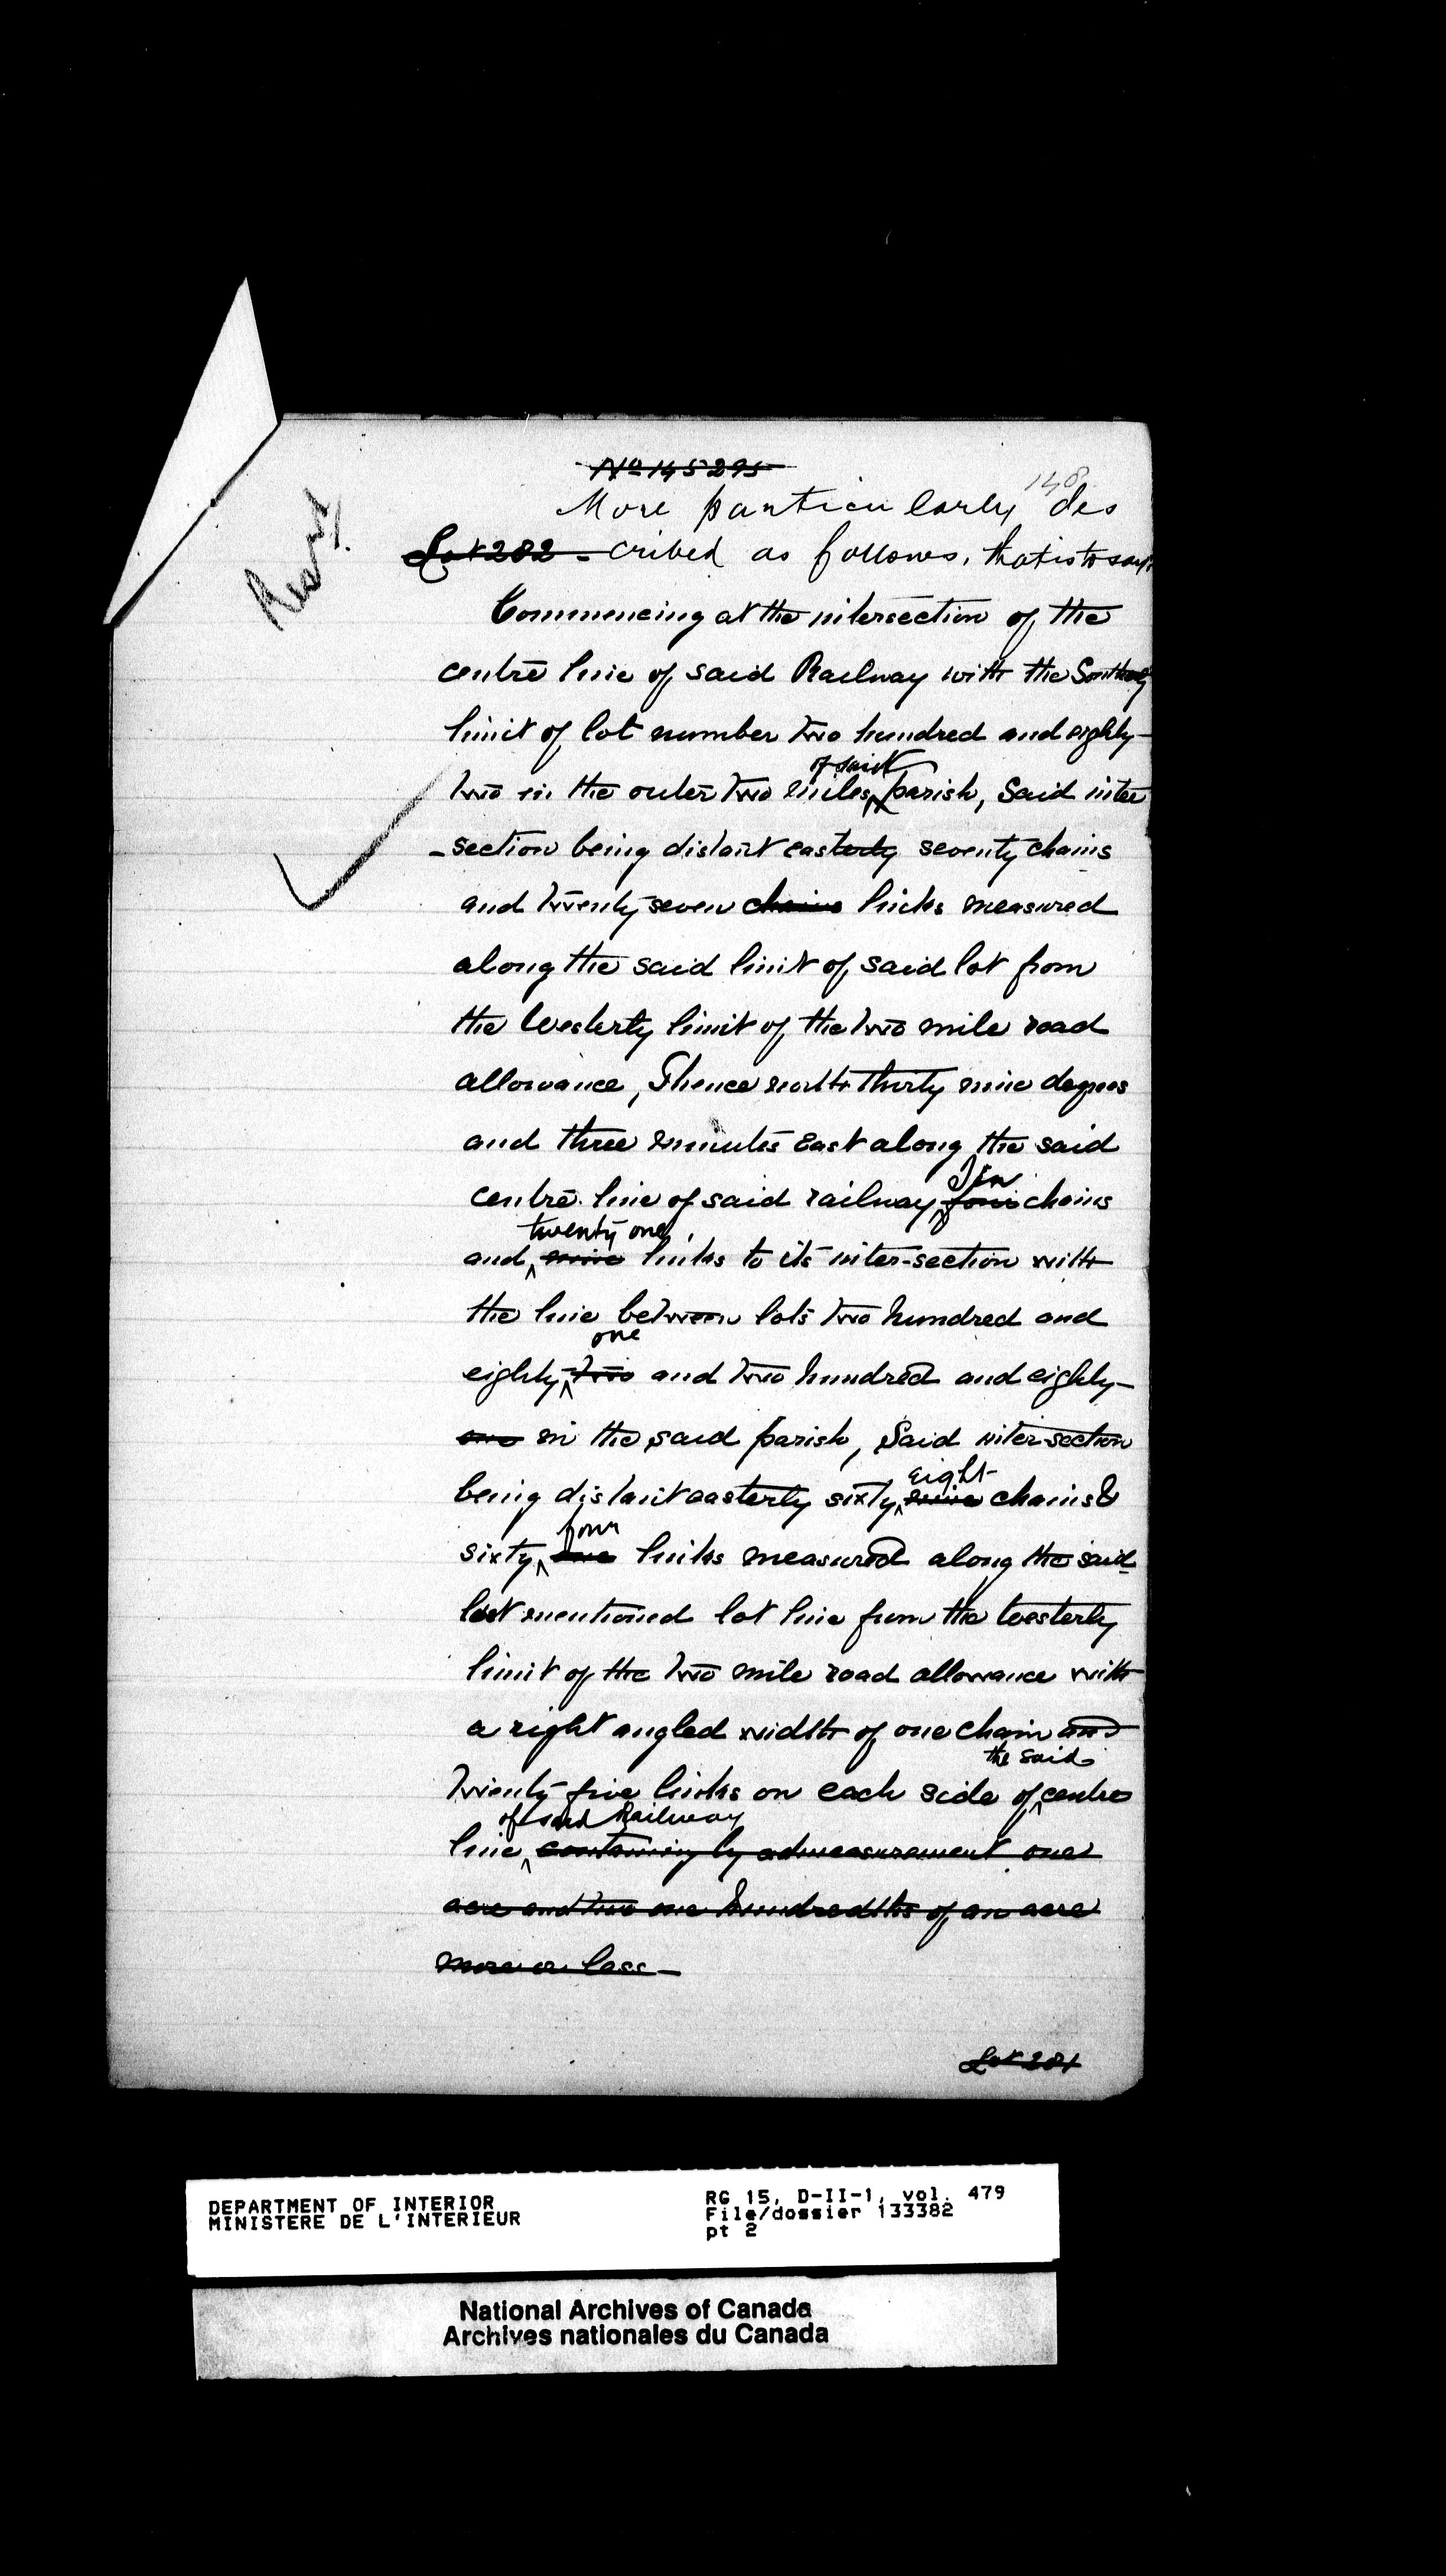 No 145295
148
More particularly des
Lot 282 - cribed as follows, that is to say:
Commencing at the intersection of the
centre line of said Railway with the Southerly
limit of lot number two hundred and eighty-
of said
two in the outer two miles parish, Said inter
-section being distant easterly seventy chains
and twenty seven chains links measured
along the said limit of said lot from
the Westerly limit of the two mile road
allowance, Thence north thirty nine degrees
and three minutes East along the said
Ten
centre line of said railway four chains
twenty one
and nine links to its inter-section with
the line between lots two hundred and
one
eighty-two and two hundred and eighty-
one in the said parish, Said intersection
eight
being distant easterly sixty nine chains &
four
sixty one links measured along the said
last mentioned lot line from the Westerly
limit of the two mile road allowance with
a right angled width of one chain and
the said
twenty-five links on each side of centre
of said Railway
line containing by admeasurement one
acre and two one hundredths of an acre
more or less -
Lot 281
DEPARTMENT OF INTERIOR
MINISTERE DE L'INTERIEUR
RG 15, D-II-1, vol. 479
File/dossier 133382
pt 2
National Archives of Canada
Archives nationales du Canada